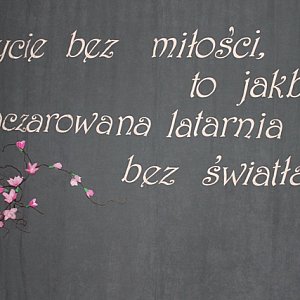 ycie bez miłości,
to jakb
czarowana latarnia
bez światła